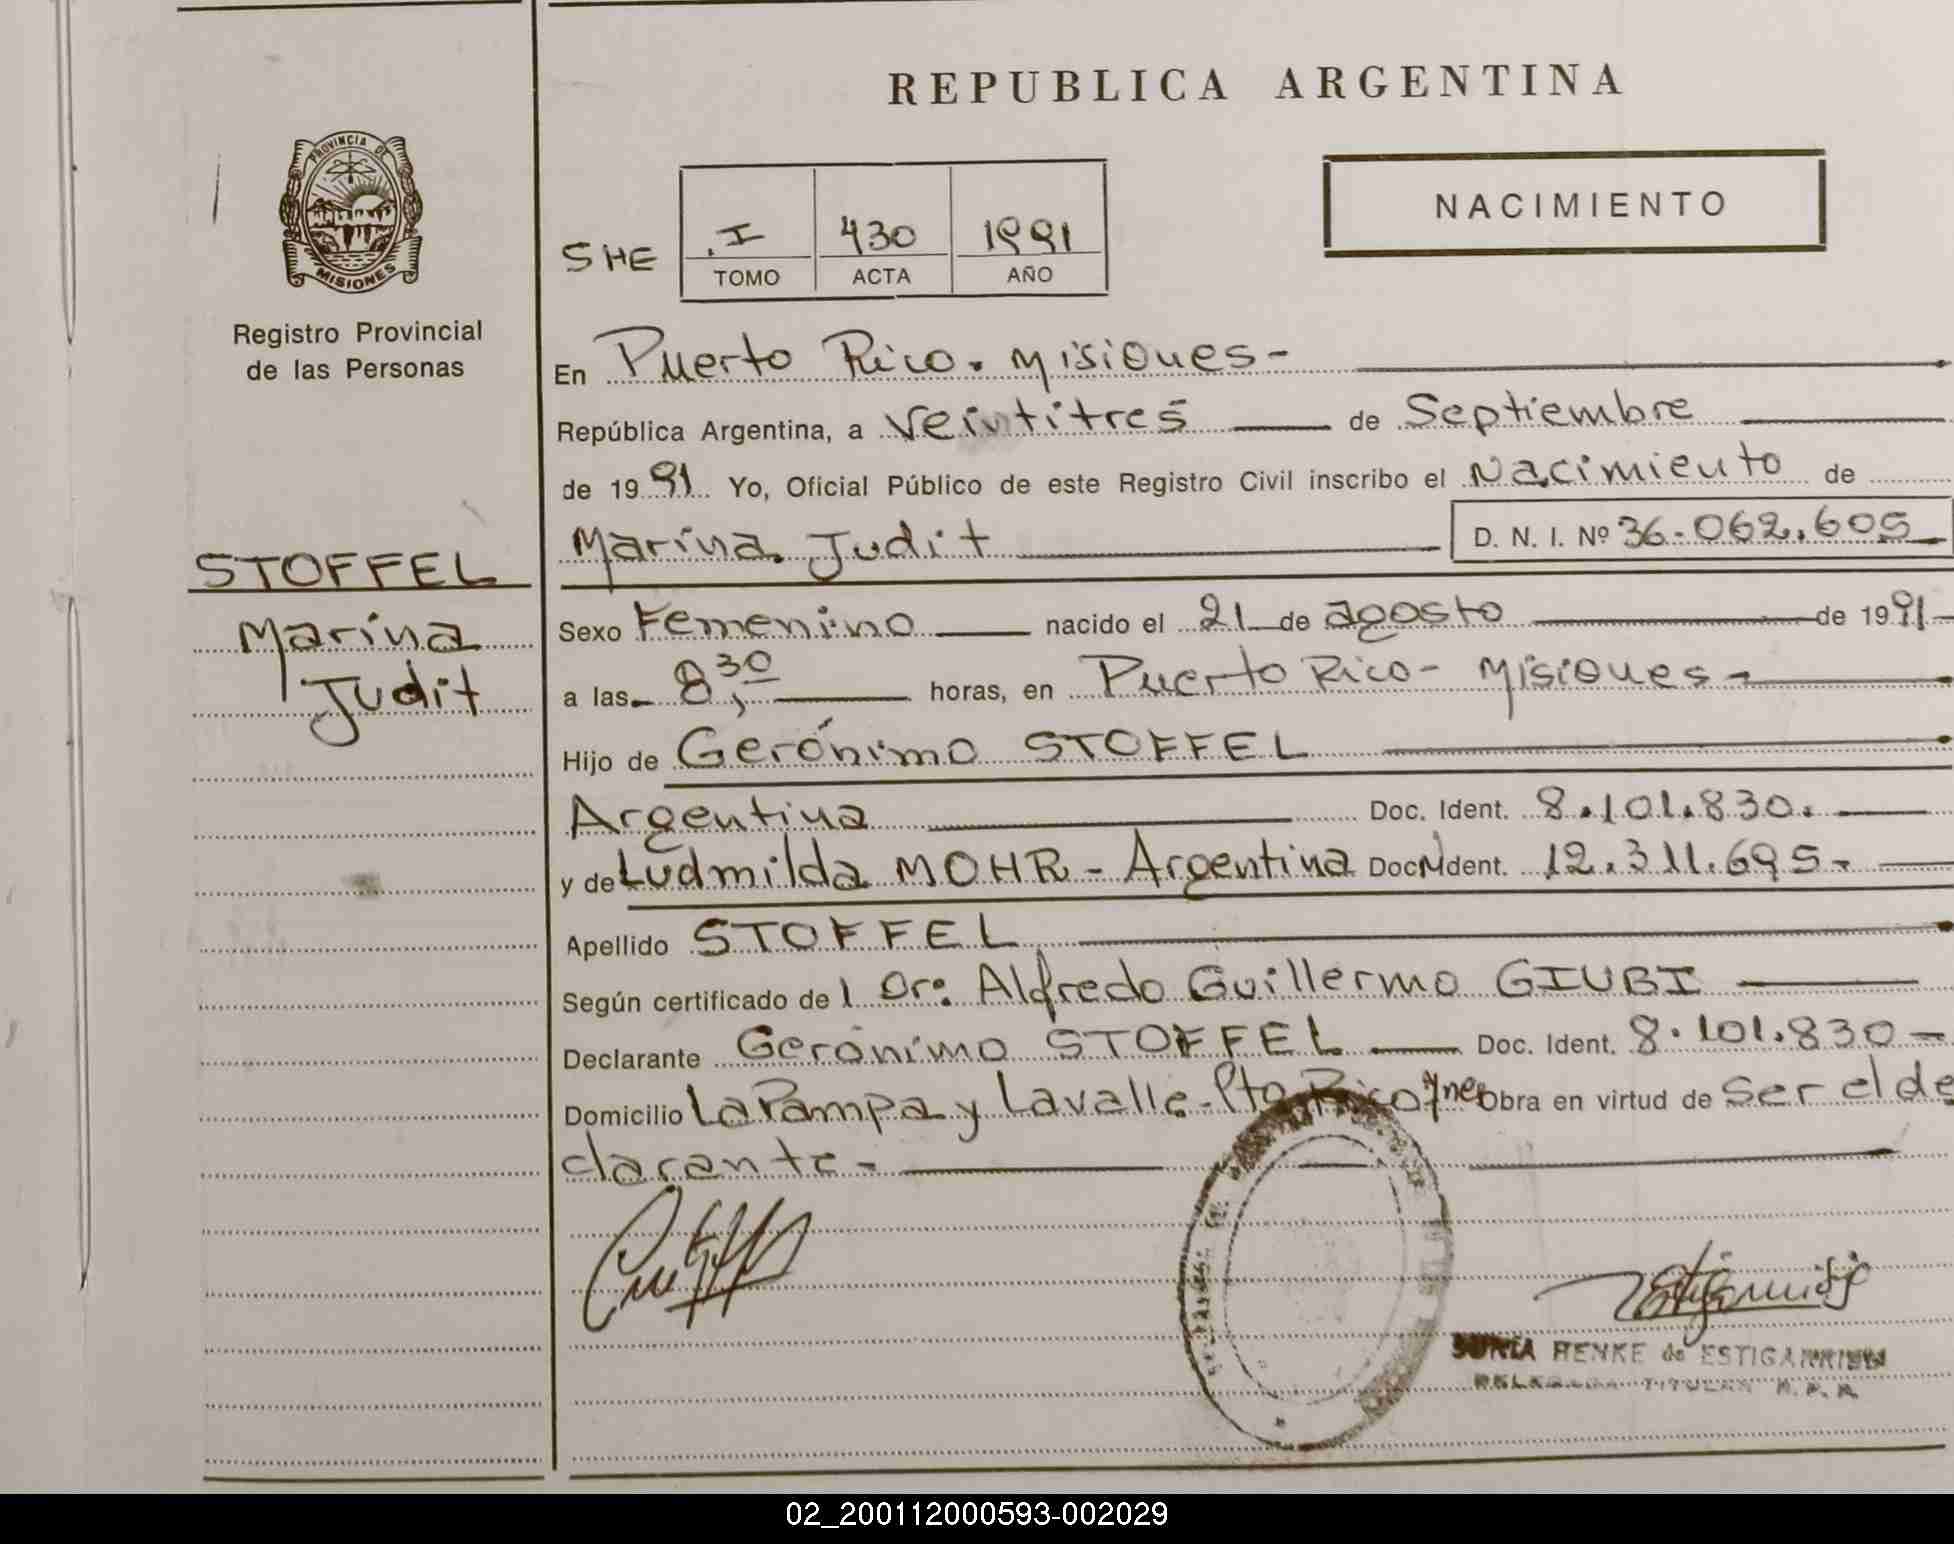 REPUBLICA ARGENTINA
PROVINCIA DE
MISIONES
Registro Provincial
de las Personas
NACIMIENTO
SHE
I 430 1991
TOMO ACTA AÑO
En Puerto Rico. Misiones-
República Argentina, a Veintitres de Septiembre
de 1991 Yo, Oficial Público de este Registro Civil inscribo el Nacimiento de
Marina Judit D. N. I. Nº 36.062.605
STOFFEL
Marina
Judit
Sexo Femenino nacido el 21 de agosto de 1991
a las 8,30 horas, en Puerto Rico- Misiones-
Hijo de Gerónimo STOFFEL
Argentina Doc. Ident. 8.101.830.
y de Ludmilda MOHR - Argentina Doc. Ident. 12.311.695.-
Apellido STOFFEL
Según certificado del Dr. Alfredo Guillermo GIUBI
Declarante Gerónimo STOFFEL Doc. Ident. 8.101.830-
Domicilio La Pampa y Lavalle-Pto Rico Mnes Obra en virtud de Ser el de
clarante-
SONIA HENKE de ESTIGARRIBIA
DELEGADA TITULAR R. P. P.
02_200112000593-002029